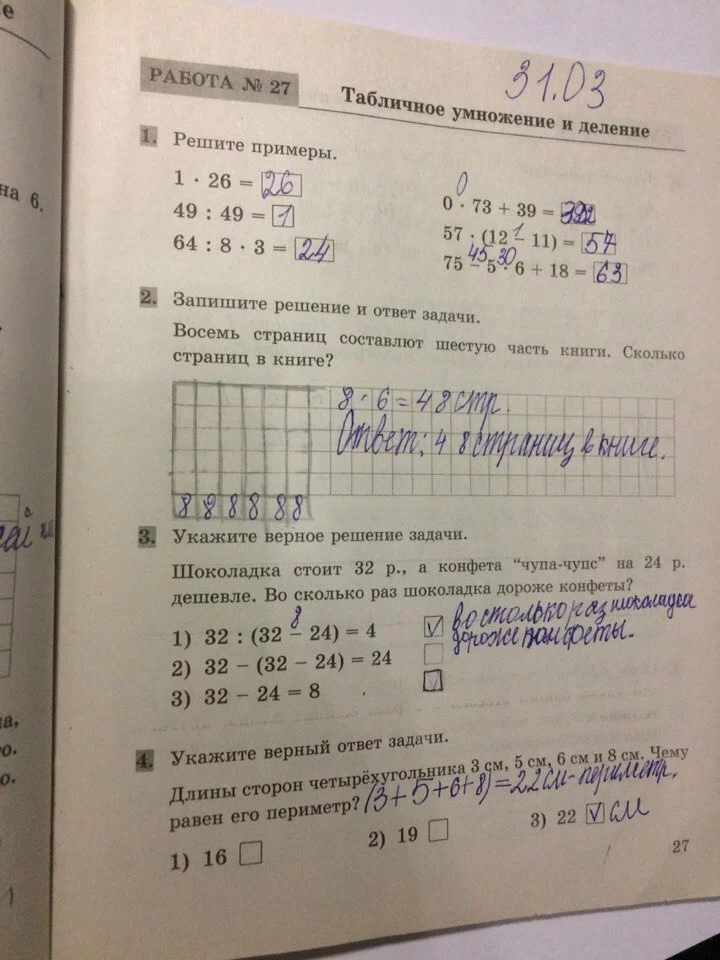 е
31.03
РАБОТА № 27
Табличное умножение и деление
1. Решите примеры.
на 6.
1 · 26 = 26
49 : 49 = 1
64 : 8 · 3 = 24
0
0 · 73 + 39 =
1
57 · (12 − 11) = 57
45 30
75 − 5 · 6 + 18 = 63
2. Запишите решение и ответ задачи.
Восемь страниц составлют шестую часть книги. Сколько
страниц в книге?
8 · 6 = 48 стр.
Ответ: 48 страниц в книге.
8 8 8 8 8 8
3. Укажите верное решение задачи.
Шоколадка стоит 32 р., а конфета “чупа-чупс” на 24 р.
дешевле. Во сколько раз шоколадка дороже конфеты?
8
1) 32 : (32 − 24) = 4 ✓ во столько раз шоколадка
дороже конфеты.
2) 32 − (32 − 24) = 24
3) 32 − 24 = 8
4. Укажите верный ответ задачи.
Длины сторон четырёхугольника 3 см, 5 см, 6 см и 8 см. Чему
равен его периметр? (3+5+6+8)=22см-периметр.
1) 16
2) 19
3) 22 ✓ см
27